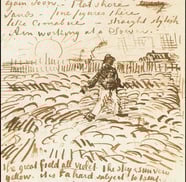 again soon - Flat shore
sands - fine figures there
like Cimabue - straight stylish
Am working at a Sower.
the great field all violet the sky & sun very
yellow. it is a hard subject to treat.